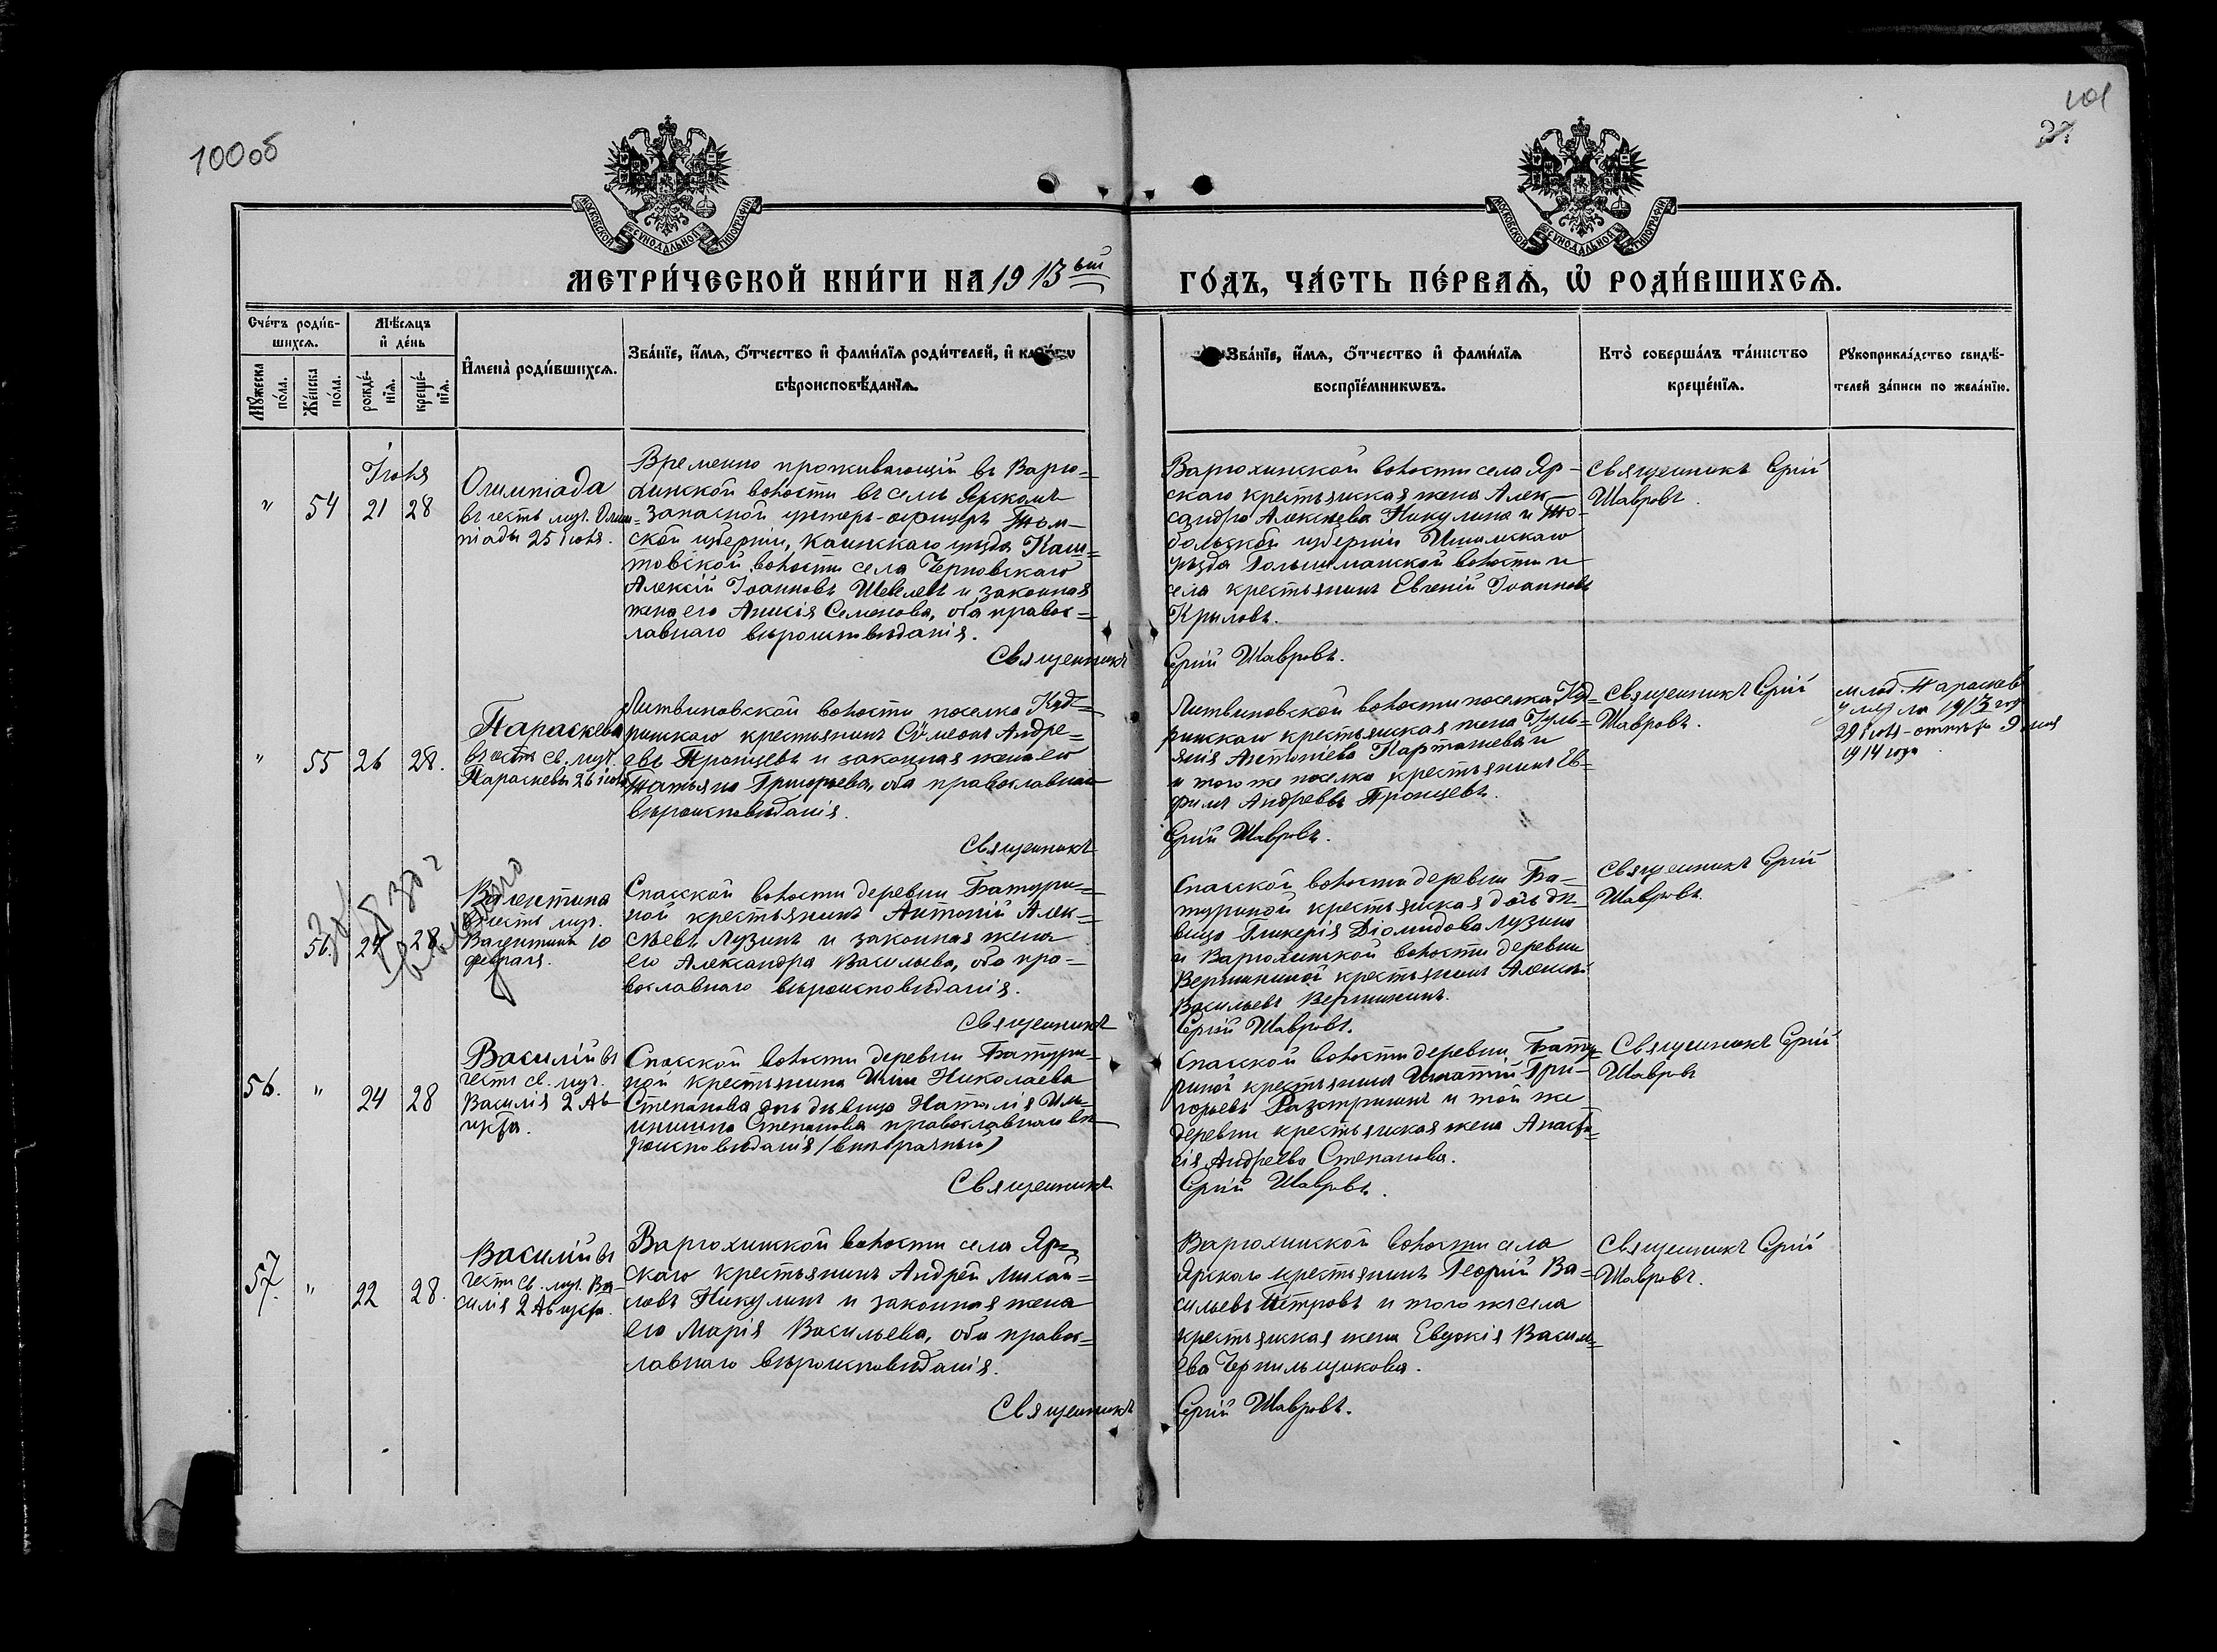 100об
101
37.
МОСКОВСКОЙ СѴНОДАЛЬНОЙ ТИПОГРАФІИ
МОСКОВСКОЙ СѴНОДАЛЬНОЙ ТИПОГРАФІИ
МЕТРИ́ЧЕСКОЙ КНИ́ГИ НА 1913ый
ГО́ДЪ, ЧА́СТЬ ПЕ́РВАѦ, Ѡ҆ РОДИ́ВШИХСѦ.
Сче́тъ роди́в-
шихсѧ.
Мѣ́сѧцъ
и҆ де́нь
Мꙋ́жеска
по́ла.
Же́нска
по́ла.
рожде́-
нїѧ.
креще́-
нїѧ.
И҆мена̀ роди́вшихсѧ.
Зва́нїе, и҆́мѧ, ѻ҆́тчество и҆ фами́лїѧ роди́телей, и҆ како́гѡ
вѣроисповѣ́данїѧ.
Зва́нїе, и҆́мѧ, ѻ҆́тчество и҆ фами́лїѧ
воспрїе́мникѡвъ.
Кто̀ соверша́лъ та́инство
креще́нїѧ.
Рꙋкоприкла́дство свидѣ́-
телей за́писи по жела́нїю.
Іюня
" 54 21 28
Олимпіада
въ честь муч. Олим-
піады 25 іюля.
Временно проживающій въ Варю-
хинской волости въ селѣ Ярскомъ
запасной унтеръ-офицеръ Том-
ской губерніи, Каинскаго уѣзда Каш-
товской волости села Черновскаго
Алексій Іоанновъ Шевелевъ и законная
жена его Анисія Семенова, оба правос-
лавнаго вѣроисповѣданія.
Священникъ
Варюхинской волости села Яр-
скаго крестьянская жена Алек-
сандра Алексѣева Никулина и То-
больской губерніи Ишимскаго
уѣзда Голышмановской волости и
села крестьянинъ Евгеній Іоанновъ
Крыловъ.
Сергій Шавровъ.
Священникъ Сергій
Шавровъ.
" 55 26 28.
Параскева
въ честь св. муч.
Параскевы 26 іюля
Литвиновской волости поселка Куд-
ринскаго крестьянинъ Сѵмеонъ Андре-
евъ Пронцевъ и законная жена его
Татьяна Григорьева, оба православнаго
вѣроисповѣданія.
Священникъ
Литвиновской волости поселка Куд-
ринскаго крестьянская жена Іуль-
янія Антоніева Карташева и
и того же поселка крестьянинъ Ев-
фимъ Андреевъ Пронцевъ.
Сергій Шавровъ.
Священникъ Сергій
Шавровъ.
млад. Параскева
умерла 1913 год
29 іюля - отпѣта 9 мая
1914 года
56. 24 28
Валентина
въ честь муч.
Валентины 10
февраля.
Спасской волости деревни Батури-
ной крестьянинъ Антоній Алек-
сѣевъ Лузинъ и законная жена
его Александра Васильева, оба пра-
вославнаго вѣроисповѣданія.
Священникъ
Спасской волости деревни Ба-
туриной крестьянская дочь дѣ-
вица Гликерія Діомидова Лузина
и Варюхинской волости деревни
Вершининой крестьянинъ Алексѣй
Васильевъ Вершининъ.
Сергій Шавровъ.
Священникъ Сергій
Шавровъ.
56. " 24 28
Василій въ
честь св. муч.
Василія 2 Ав-
густа.
Спасской волости деревни Батури-
ной крестьянина Иліи Николаева
Степанова дочь дѣвица Наталія Иль-
инишна Степанова православнаго вѣ-
роисповѣданія (внѣбрачный)
Священникъ
Спасской волости деревни Бату-
риной крестьянинъ Игнатій Гри-
горьевъ Разстригинъ и той же
деревни крестьянская жена Анаста-
сія Андреева Степанова.
Сергій Шавровъ.
Священникъ Сергій
Шавровъ
57. " 22 28.
Василій въ
честь св. муч. Ва-
силія 2 Августа.
Варюхинской волости села Яр-
скаго крестьянинъ Андрей Михай-
ловъ Никулинъ и законная жена
его Марія Васильева, оба правос-
лавнаго вѣроисповѣданія.
Священникъ
Варюхинской волости села
Ярскаго крестьянинъ Георгій Ва-
сильевъ Петровъ и того же села
крестьянская жена Евдокія Василь-
ева Чернильщикова.
Сергій Шавровъ.
Священникъ Сергій
Шавровъ.